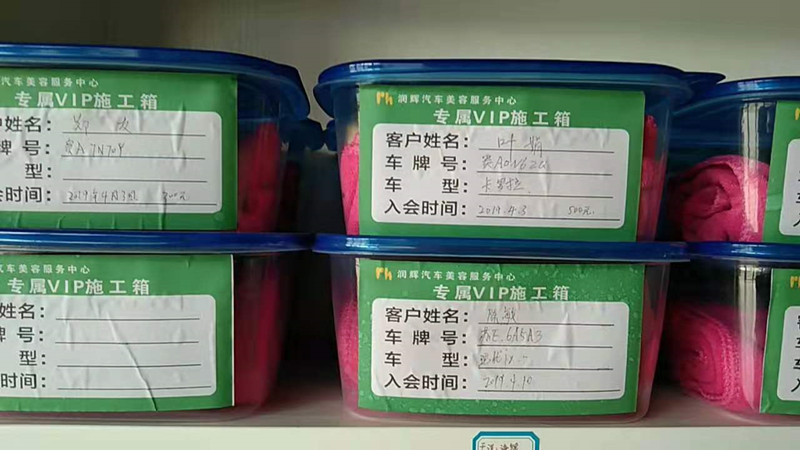 汽车美容服务中心
专属VIP施工箱
户姓名:
牌号: 7N70Y
型:
会时间: 2019年4月3日 300元
润辉汽车美容服务中心
专属VIP施工箱
客户姓名: 叶
车牌号:
车型: 卡罗拉
入会时间: 2019.4.3 500元
汽车美容服务中心
专属VIP施工箱
户姓名:
牌号:
型:
会时间:
润辉汽车美容服务中心
专属VIP施工箱
客户姓名: 陈敏
车牌号: 6A5A3
车型:
入会时间: 2019.4.10